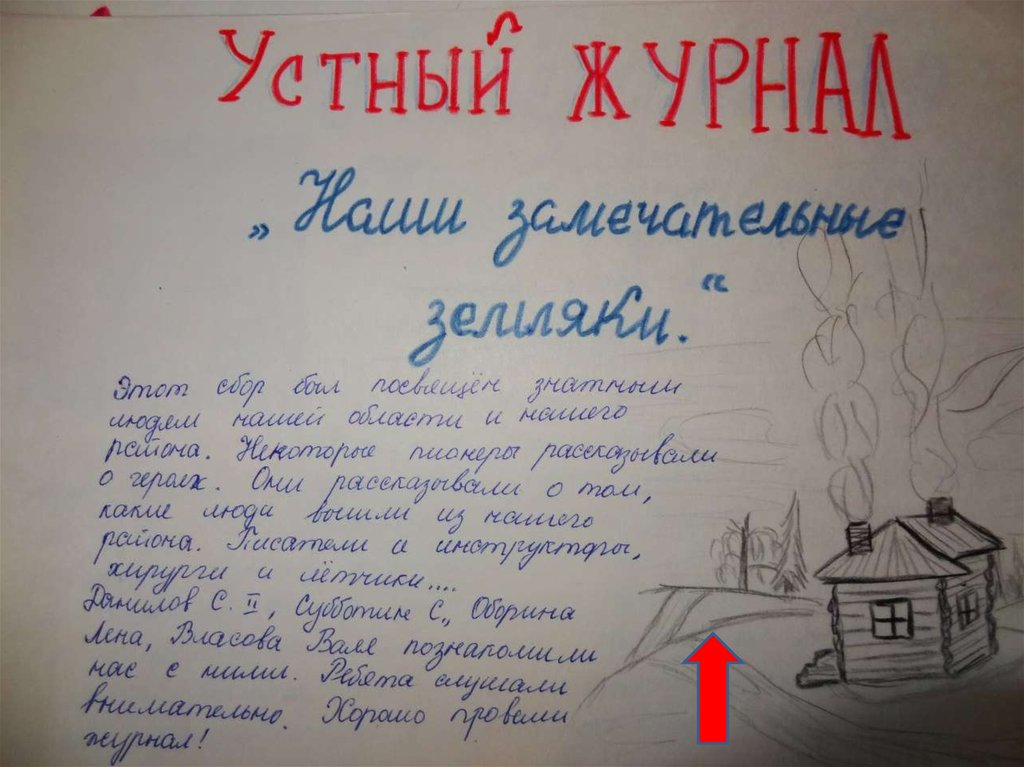 Устный журнал
„Наши замечательные
земляки.“
Этот сбор был посвящён знатным
людем нашей области и нашего
района. Некоторые пионеры рассказывали
о героях. Они рассказывали о том,
какие люди вышли из нашего
района. Писатели и инструкторы,
хирурги и лётчики....
Данилов С. II, Субботин С., Оборина
Лена, Власова Валя познакомили
нас с ними. Ребята слушали
внимательно. Хорошо провели
журнал!